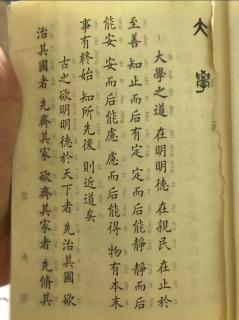 大學
大學之道 在明明德 在親民 在止於
至善 知止而后有定 定而后能靜 靜而后
能安 安而后能慮 慮而后能得 物有本末
事有終始 知所先後 則近道矣
古之欲明明德於天下者 先治其國 欲
治其國者 先齊其家 欲齊其家者 先脩其